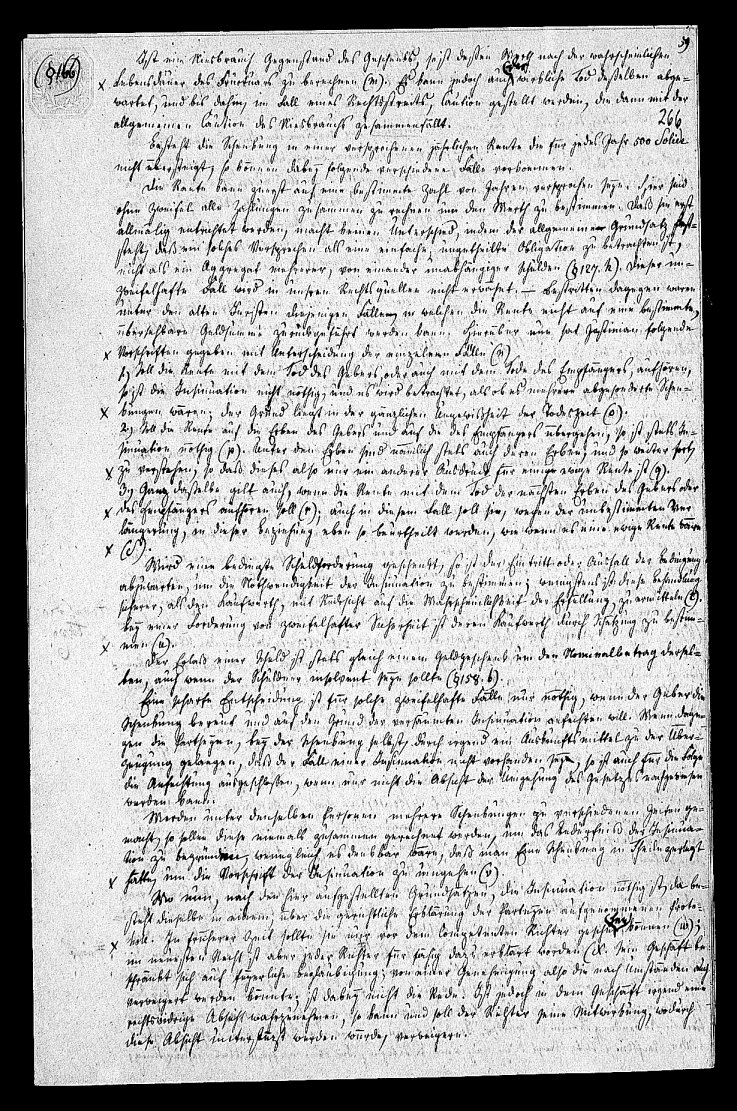 39
(§166)
Ist ein Niesbrauch Gegenstand des Geschenks, so ist dessen Werth nach der wahrscheinlichen
Lebensdauer des Fructuars zu berechnen (m). Es kann jedoch auch der wirkliche Tod desselben abge-
wartet, und bis dahin, im Fall eines Rechtsstreits, Caution gestellt werden, die dann mit der
allgemeinen Caution des Niesbrauchs zusammenfällt.
266
Besteht die Schenkung in einer versprochenen jährlichen Rente die für jedes Jahr 500 Solidi
nicht übersteigt, so können dabey folgende verschiedene Fälle vorkommen.
Die Rente kann zuerst auf eine bestimmte Zahl von Jahren versprochen seyn. Hier sind
ohne Zweifel alle Zahlungen zusammen zu rechnen um den Werth zu bestimmen. Daß sie erst
allmälig entrichtet werden, macht keinen Unterschied, indem der allgemeine Grundsatz fest-
steht, daß ein solches Versprechen als eine einfache, ungetheilte Obligation zu betrachten ist,
nicht als ein Aggregat mehrerer, von einander unabhängiger Schulden (§127. h). Dieser un-
zweifelhafte Fall wird in unsren Rechtsquellen nicht erwähnt. — Bestritten dagegen waren
unter den alten Juristen diejenigen Fälle, in welchen die Rente nicht auf eine bestimmte,
übersehbare Geldsumme zurückgeführt werden kann. Hierüber nun hat Justinian folgende
Vorschriften gegeben mit Unterscheidung der einzelnen Fälle (n).
1) Soll die Rente mit dem Tod des Gebers, oder auch mit dem Tode des Empfängers, aufhören,
so ist die Insinuation nicht nöthig, und es wird betrachtet, als ob es mehrere abgesonderte Schen-
kungen wären; der Grund liegt in der gänzlichen Ungewißheit der Todeszeit (o).
2) Soll die Rente auf die Erben des Gebers und auf die des Empfängers übergehen, so ist stets In-
sinuation nöthig (p). Unter den Erben sind nämlich stets auch deren Erben, und so weiter fort,
zu verstehen, so daß dieses also nur ein anderer Ausdruck für eine ewige Rente ist (q).
3) Ganz dasselbe gilt auch, wenn die Rente mit dem Tod der nächsten Erben des Gebers oder
des Empfängers aufhören soll (r); auch in diesem Fall soll sie, wegen der unbestimmten Ver-
längerung, in dieser Beziehung eben so beurtheilt werden, wie wenn es eine ewige Rente wäre
(s).
Wird eine bedingte Schuldforderung geschenkt, so ist der Eintritt oder Ausfall der Bedingung
abzuwarten, um die Nothwendigkeit der Insinuation zu bestimmen; wenigstens ist diese Behandlung
sicherer, als den Kaufwerth, mit Rücksicht auf die Wahrscheinlichkeit der Erfüllung, zu ermitteln (t).
Bey einer Forderung von zweifelhafter Sicherheit ist deren Kaufwerth durch Schätzung zu bestim-
men (u).
Der Erlaß einer Schuld ist stets gleich einem Geldgeschenk um den Nominalbetrag dersel-
ben, auch wenn der Schuldner insolvent seyn sollte (§158. b).
Eine scharfe Entscheidung ist für solche zweifelhafte Fälle nur nöthig, wenn der Geber die
Schenkung bereut und auf den Grund der versäumten Insinuation anfechten will. Wenn dage-
gen die Partheyen, bey der Schenkung selbst, durch irgend ein Auskunftsmittel zu der Über-
zeugung gelangen, daß der Fall einer Insinuation nicht vorhanden sey, so ist auch für die Folge
die Anfechtung ausgeschlossen, wenn nur nicht die Absicht der Umgehung des Gesetzes nachgewiesen
werden kann.
Werden unter denselben Personen mehrere Schenkungen zu verschiedenen Zeiten ge-
macht, so sollen diese niemals zusammen gerechnet werden, um das Bedürfniß der Insinua-
tion zu begründen, wenngleich es denkbar wäre, daß man Eine Schenkung in Theile zerlegt
hätte, um die Vorschrift der Insinuation zu umgehen (v).
Wo nun, nach den hier aufgestellten Grundsätzen, die Insinuation nöthig ist, da be-
steht dieselbe in einem, über die gerichtliche Erklärung der Partheyen aufgenommenen Proto-
koll. In früherer Zeit sollte sie nur vor dem competenten Richter geschehen können (w);
im neuesten Recht ist aber jeder Richter für fähig dazu erklärt worden (x). Sein Geschäft be-
schränkt sich auf feyerliche Beglaubigung; von einer Genehmigung also die nach Umständen auch
verweigert werden könnte, ist dabey nicht die Rede. Ist jedoch in dem Geschäft irgend eine
rechtswidrige Absicht wahrzunehmen, so kann und soll der Richter seine Mitwirkung, wodurch
diese Absicht unterstützt werden würde, verweigern.